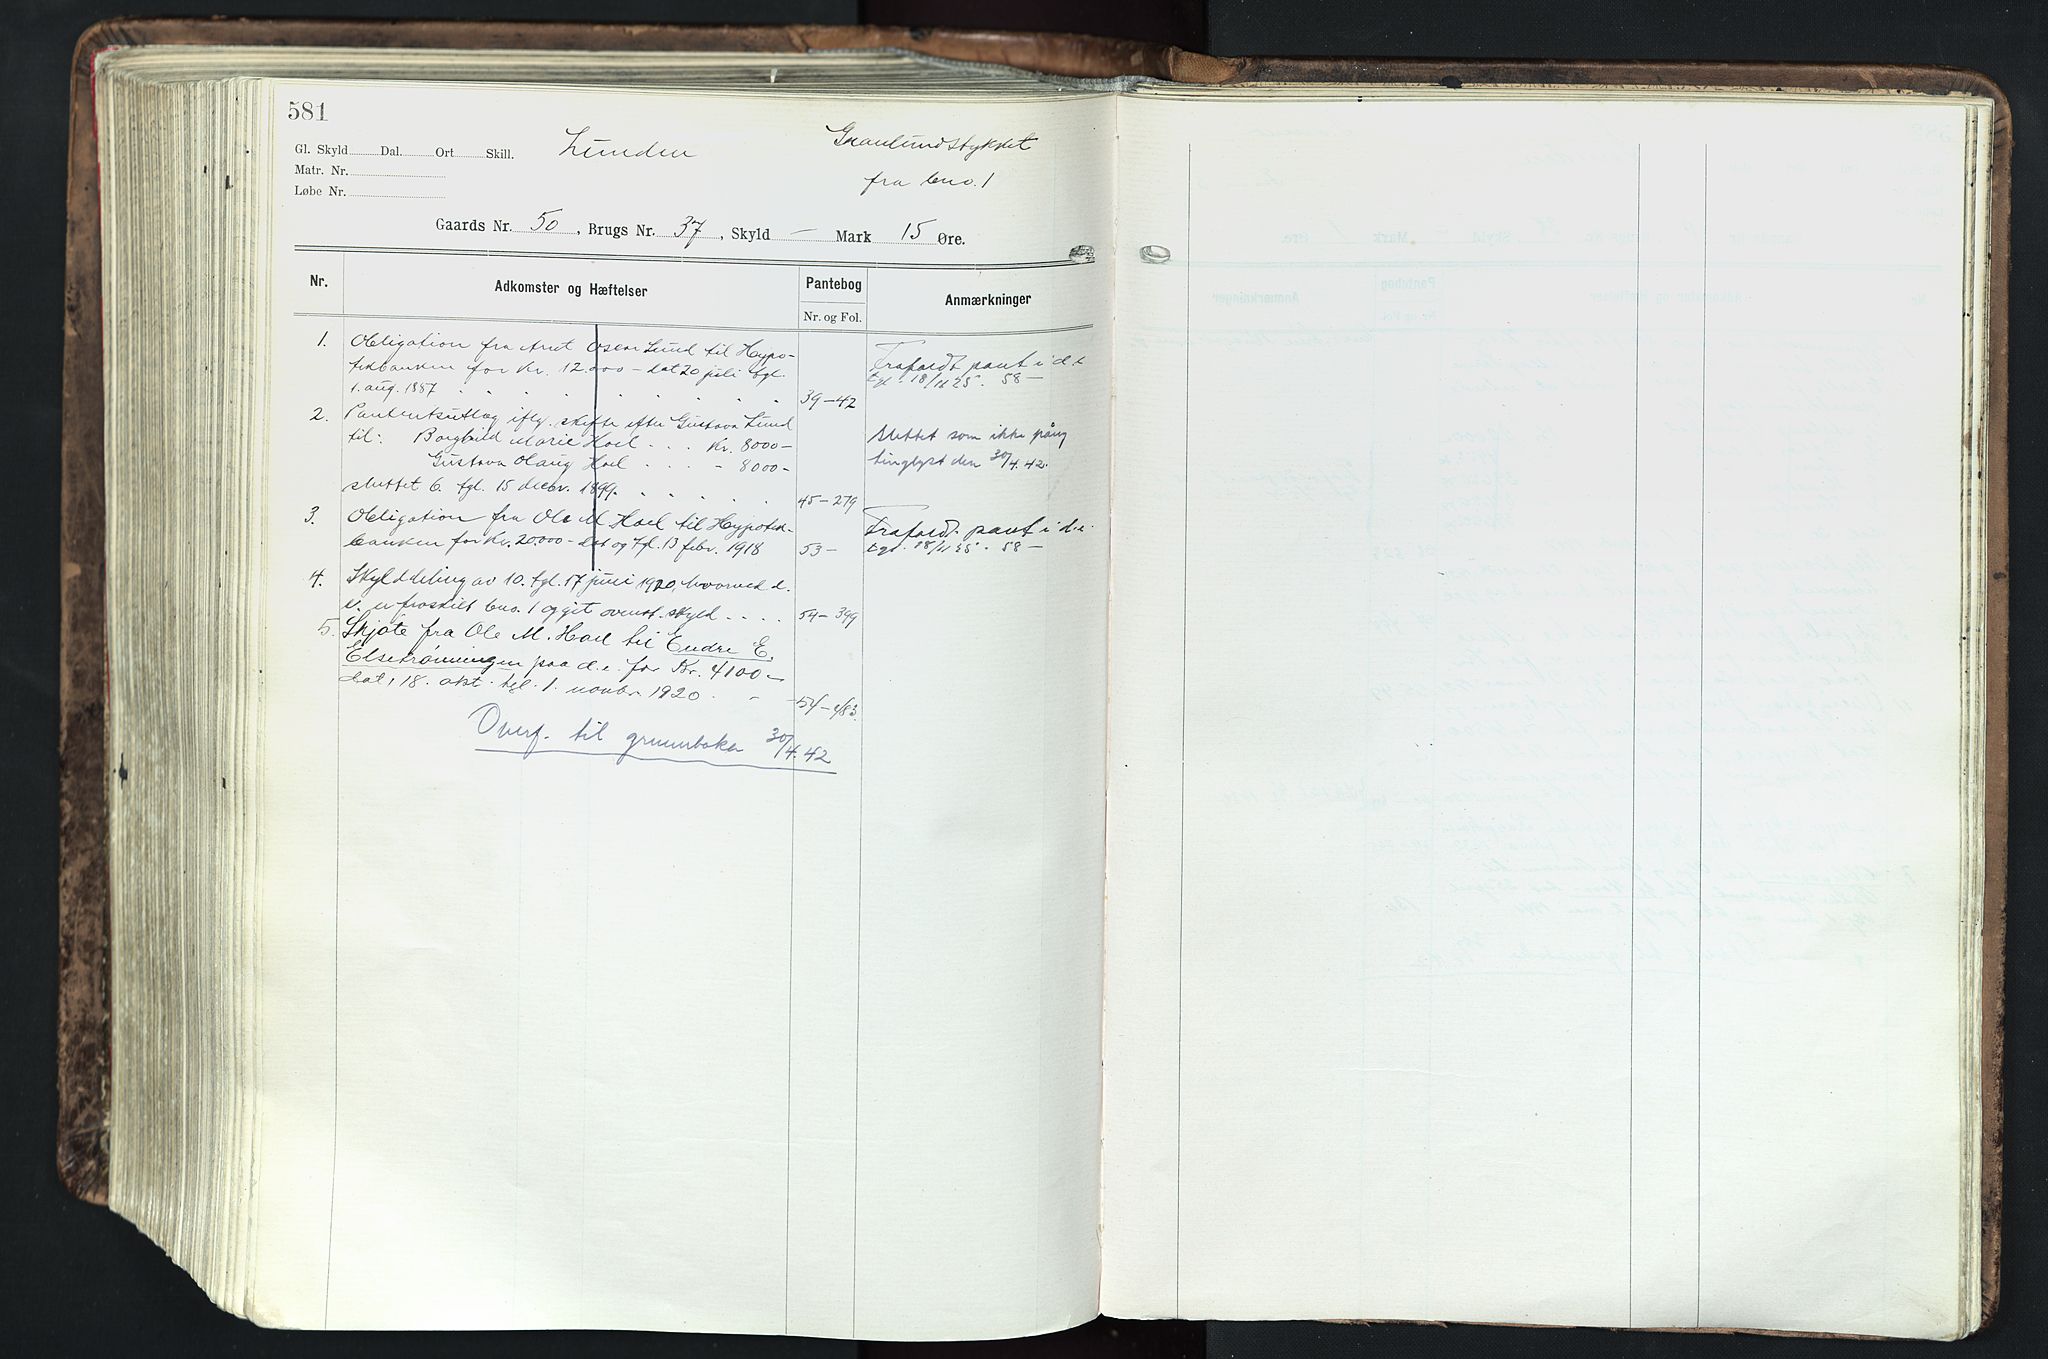 581
Gl. Skyld Dal. Ort Skill. Lunden Granlundstykket
Matr. Nr. fra bno. 1
Løbe Nr.
Gaards Nr. 50, Brugs Nr. 37, Skyld — Mark 15 Øre.
Nr. Adkomster og Hæftelser Pantebog Anmærkninger
Nr. og Fol.
1. Obligation fra Arnt Oscar Lund til Hypo-
tekbanken for Kr. 12.000 — dat 20 juli tgl.
1. aug. 1887 39-42
Frafaldt pant i d.e.
tgl. 18/11 25. 58 —
2. Panteutlæg iflg. skifte efter Gustava Lund
til: Borghild Marie Hoel . . . Kr. 8000 —
Gustava Olaug Hoel . . . . - 8000 —
sluttet 6. tgl. 15 decbr. 1899. 45-279
slettet som ikke pång
tinglyst den 30/4.42.
3. Obligation fra Ole M. Hoel til Hypotek-
banken for Kr. 20.000 — dat og tgl. 13 febr. 1918 53 —
Frafaldt pant i d.e.
tgl. 18/11 25. 58 —
4. Skylddeling av 10. tgl. 17 juni 1920, hvorved d.
e. er fraskilt bno. 1 og git ovenst. skyld . . . . 54-399
5. Skjøte fra Ole M. Hoel til Endre E.
Elsetrønningen paa d.e. for Kr. 4100 —
dat. 18. okt. tgl. 1. novbr. 1920. 54-483.
Overf. til grunnboken 30/4.42